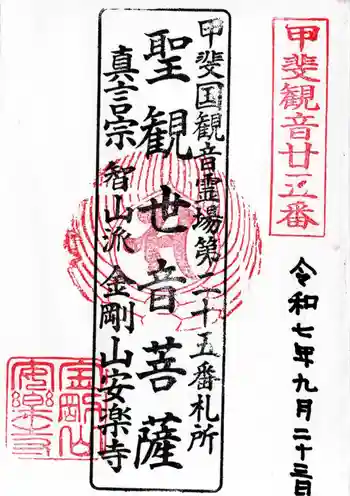 甲斐観音廿五番
令和七年九月二十三日
甲斐国観音霊場第二十五番札所
聖観世音菩薩
真言宗智山派金剛山安楽寺
金剛山
安樂寺